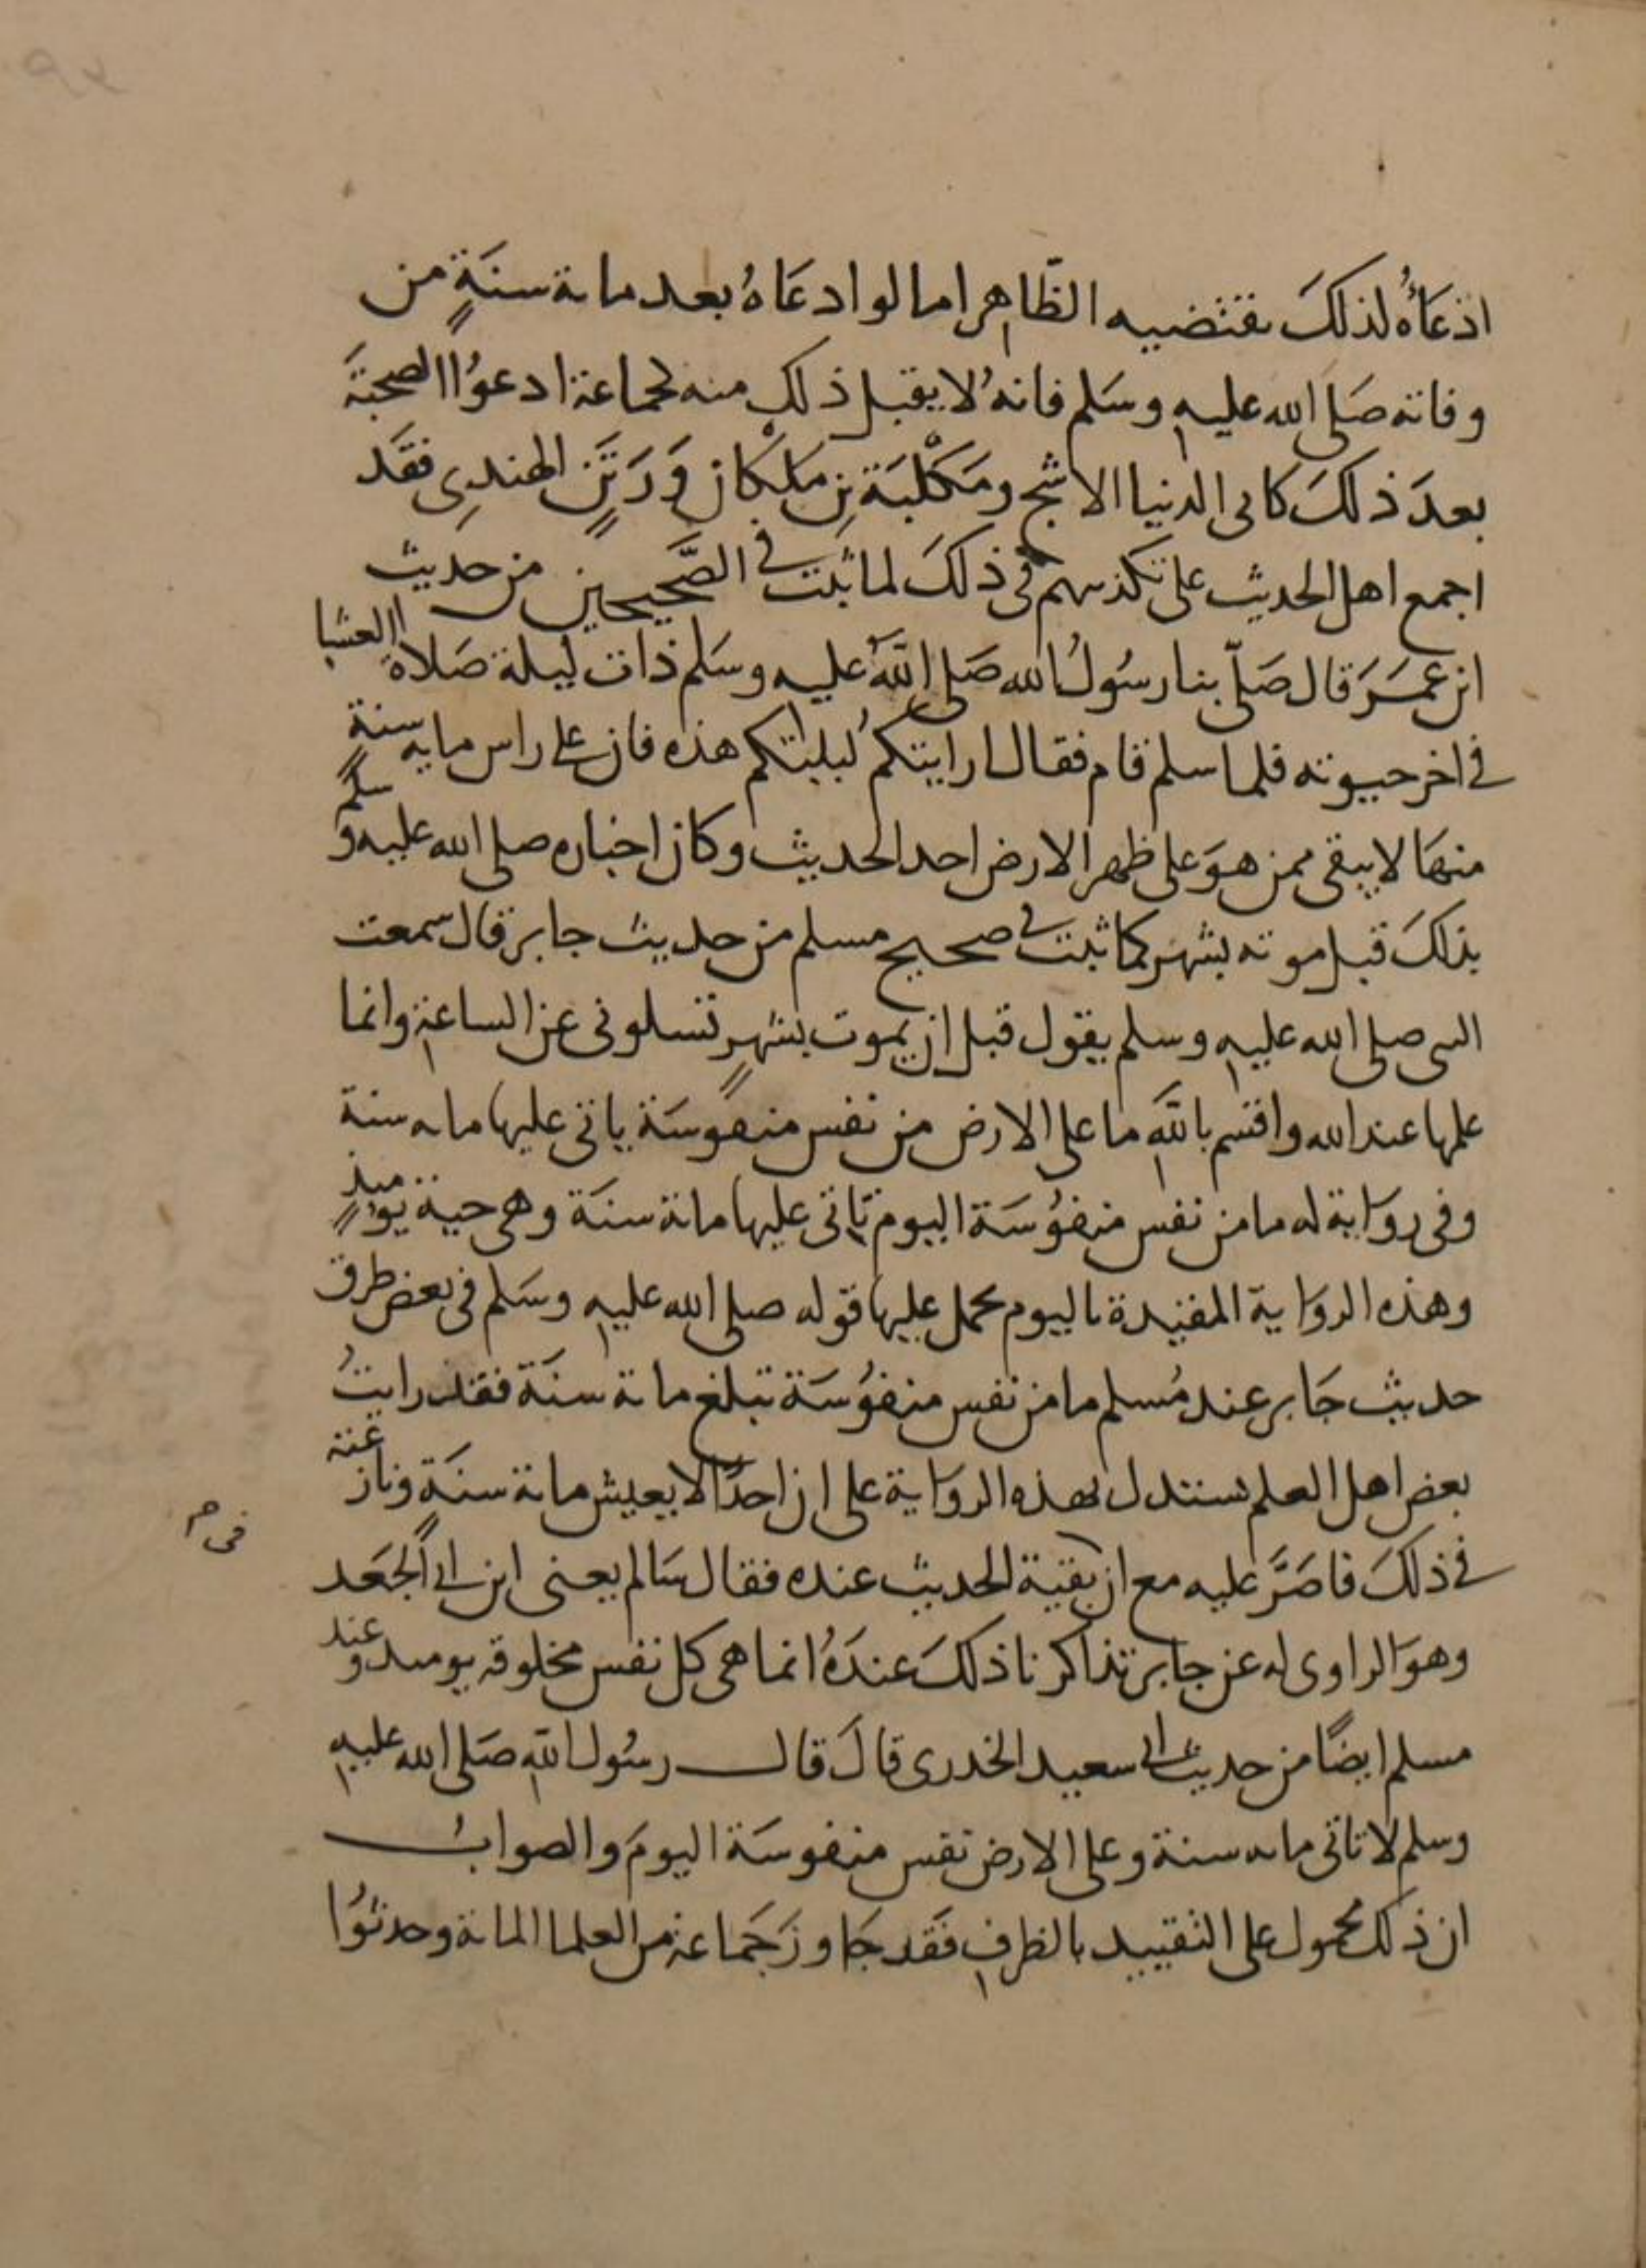 ادعَاؤُه لذلكَ يقتضيه الظّاهر اما لو ادعَاهُ بعد مائة سنَةٍ من
وفاته صَلى الله عليه وسَلم فانهُ لا يقبل ذلك منه كجماعة ادعوُا الصحبَة
بعدَ ذلكَ كابى الدنيا الاشج ومَكْلبَة بنِ مَلْكان وَرَتَنٍ الهندِى فقَد
اجمع اهل الحديث على تكذيبهم فى ذلكَ لما ثبت فى الصَّحيحين من حديث
ابن عمَرَ قال صَلّى بنا رسُولُ الله صَلى اللهُ عليه وسَلم ذات ليلة صَلاة العشا
فى اخر حيوته فلما سلم قام فقال ارايتكمُ ليلتكم هذه فان على راس مايه سنةٍ
منهَا لا يبقى ممن هوَ على ظهر الارض احد الحديث وكان اخباره صلى الله عليه وسلم
بذلكَ قبل موته بشهر كما ثبت فى صحيح مسلم من حديث جابر قال سمعت
النبى صلى الله عليه وسلم يقول قبل ان يموت بشهرٍ تسلونى عن الساعة وانما
علمها عند الله واقسم باللهِ ما على الارض من نفس منفوسَة ياتى عليها مايه سنة
وفى روَاية له ما من نفس منفوُسَة اليوم تاتى عليها مائة سنَة وهى حية يومئذٍ
وهذه الروَاية المقيدة باليوم يحمل عليها قوله صلى الله عليه وسَلم فى بعض طرق
حديث جَابر عند مُسلم ما من نفس منفوُسَة تبلغ مائة سنَة فقد رايتُ
بعض اهل العلم يستدل بهذه الروَاية على ان احدًا لا يعيش مائة سنَة ونازعته
فى ذلكَ فاصَرَّ عليه مع ان بقية الحديث عنده فقال سَالم يعنى ابن ابى الجَعد
فى م
وهوَ الراوى له عن جابر تذاكرنا ذلكَ عندَهُ انما هى كل نفس مخلوقه يوميد وعند
مسلم ايضًا من حديث ابى سعيد الخدرى قالَ قال رسُول اللهِ صَلى الله عليه
وسلم لا تاتى مايه سنة وعلى الارض نفس منفوسَة اليومَ والصوابُ
ان ذلك محمول على التقييد بالظرف فقَد جَاوزَ جَماعة من العلما المائة وحدثوُا